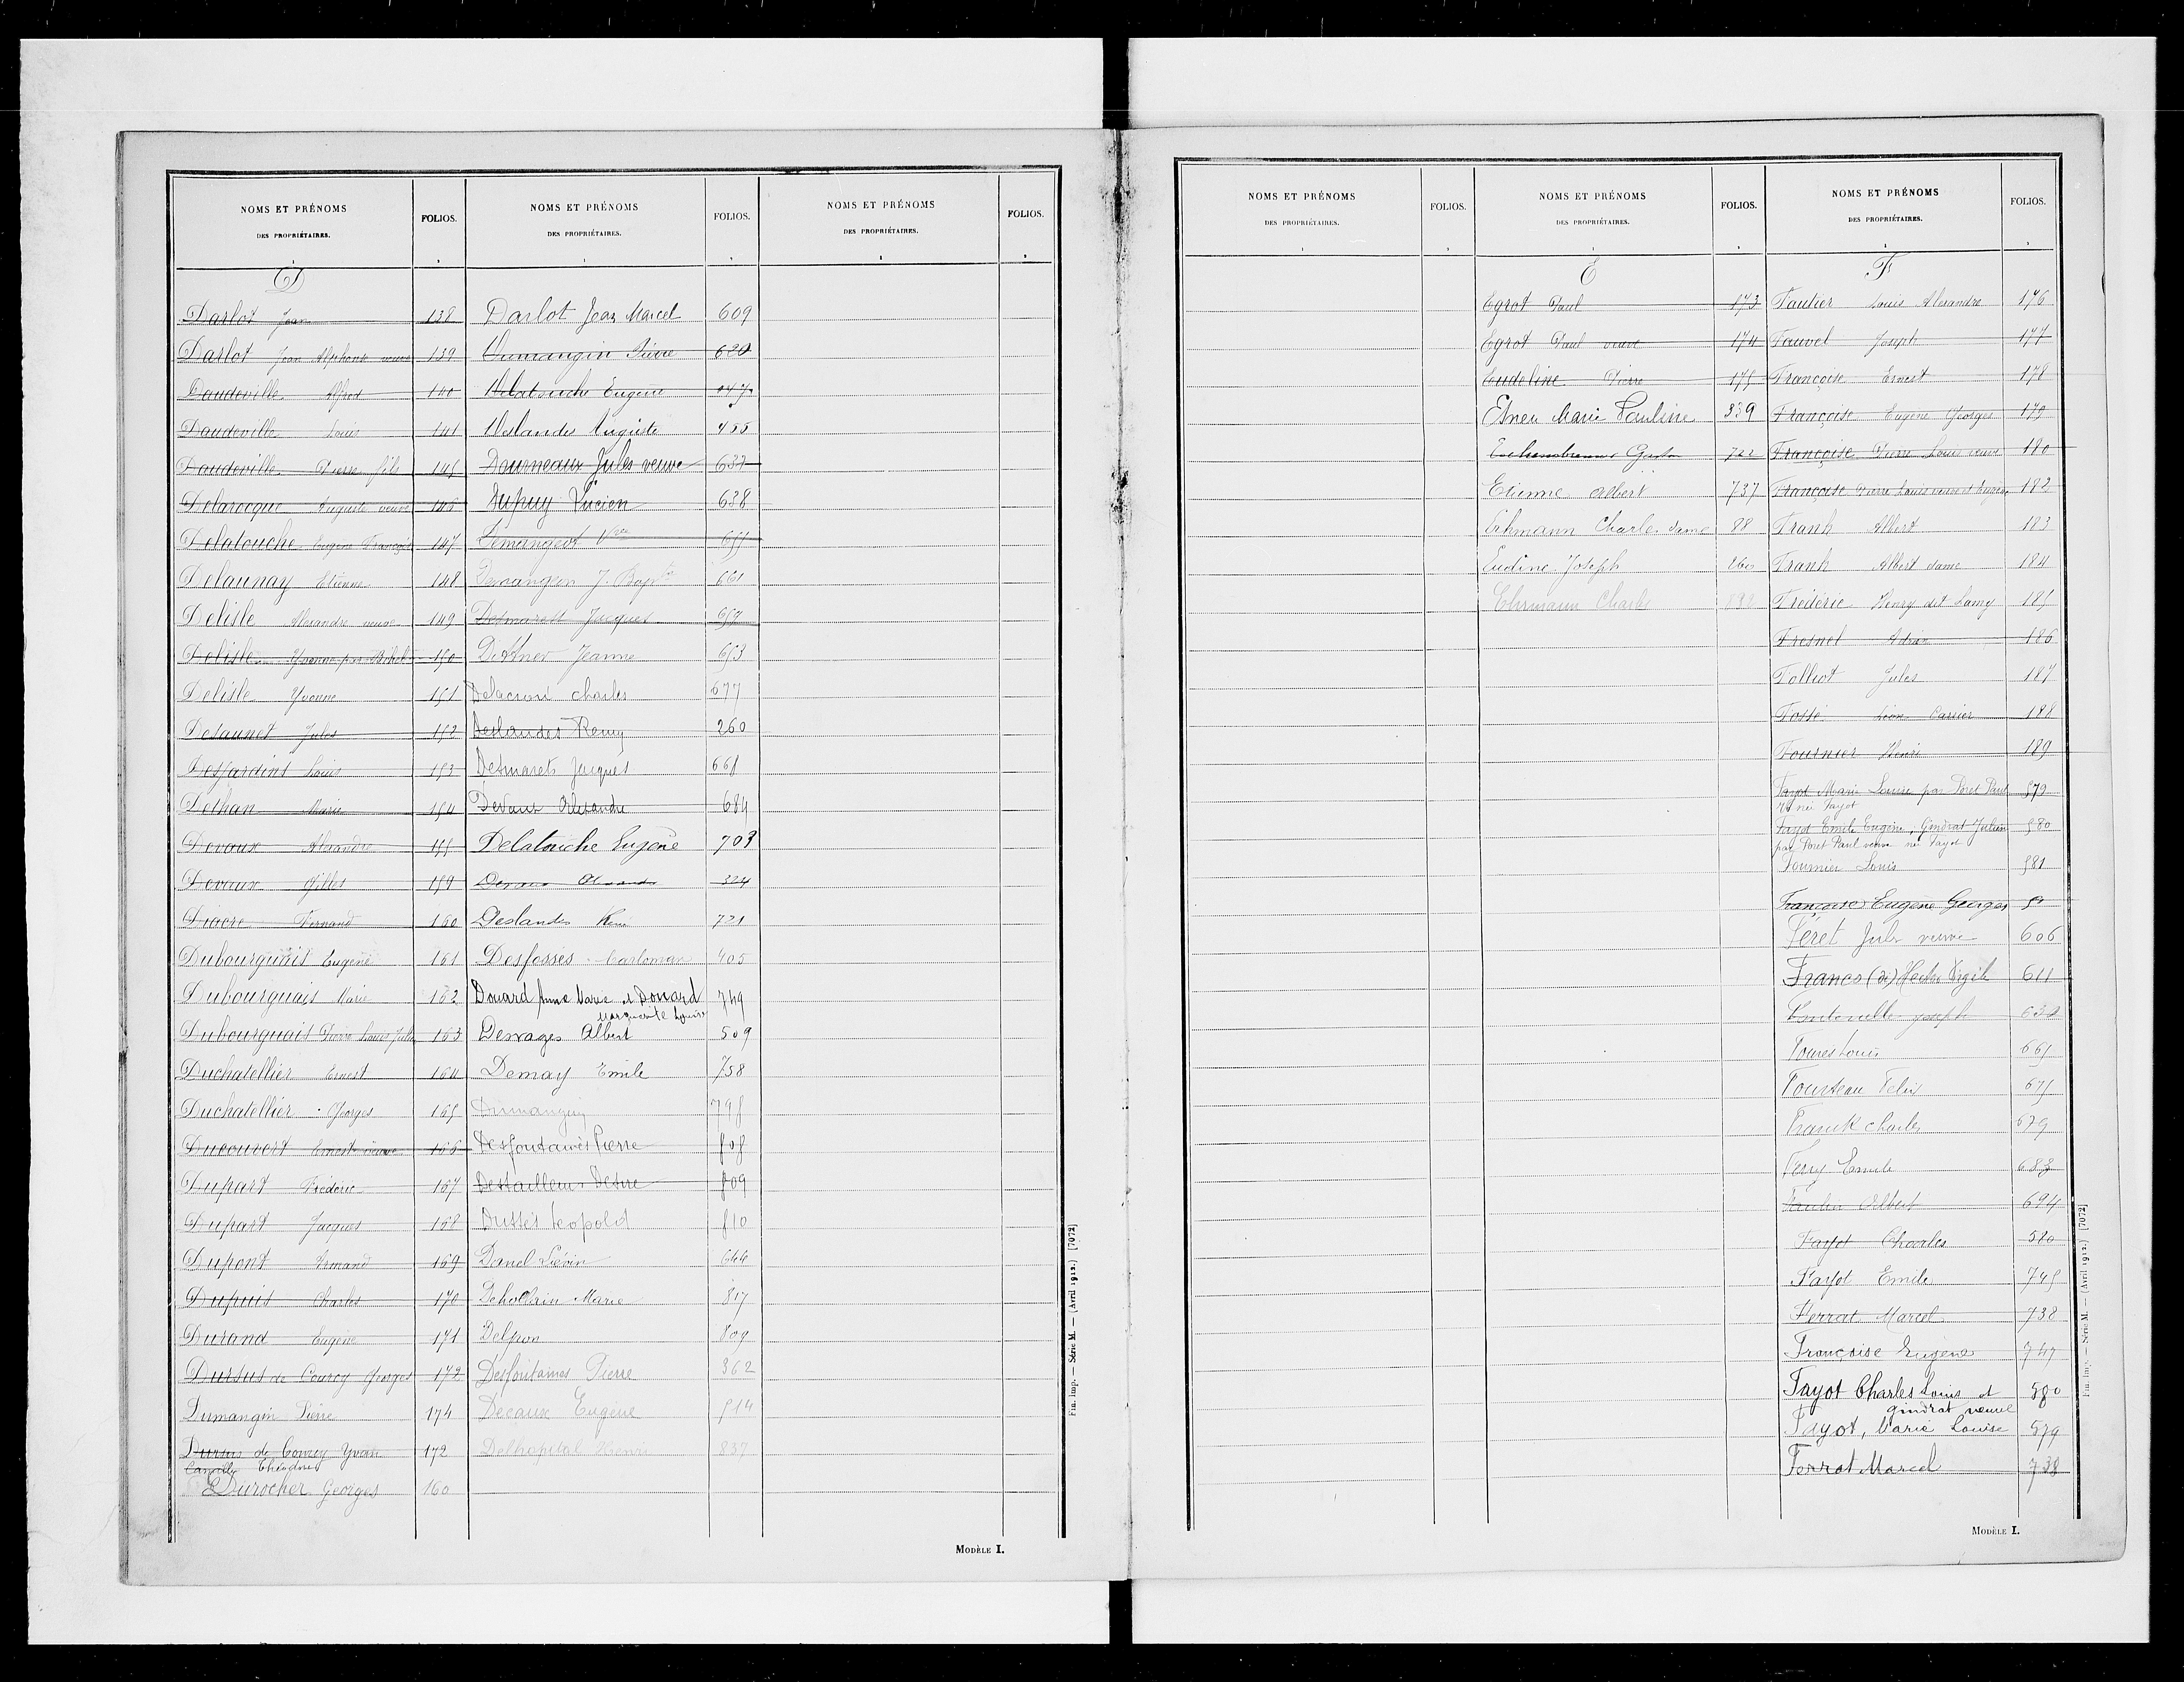 NOMS ET PRÉNOMS
DES PROPRIÉTAIRES.
FOLIOS.
D
Darlot Jean 138
Darlot Jean Alphonse veuve 139
Daudeville Alfred 140
Daudeville Louis 141
Daudeville Pierre fils 145
Delarocque Auguste veuve 146
Delatouche Eugène François 147
Delaunay Etienne 148
Delisle Alexandre veuve 149
Delisle Yvonne par 150
Delisle Yvonne 151
Delaunet Jules 152
Desjardins Louis 153
Dethan Marie 154
Devaux Alexandre 155
Devaux Gilles 159
Diacre Fernand 160
Dubourguais Eugène 161
Dubourguais Marie 162
Dubourguais Pierre Louis Jules 163
Duchatellier Ernest 164
Duchatellier Georges 165
Ducouvert Ernest veuve 166
Dupart Frédéric 167
Dupart Jacques 168
Dupont Armand 169
Dupuis Charles 170
Durand Eugène 171
Dursus de Courcy Georges 172
Dumangin Pierre 174
Dursus de Courcy Yvan 172
Camille Théodore
Durocher Georges 160
NOMS ET PRÉNOMS
DES PROPRIÉTAIRES.
FOLIOS.
Darlot Jean Marcel 609
Dumangin Pierre 620
Delatouche Eugène
Deslandes Auguste 455
Dourneaux Jules veuve 637
Dupuy Lucien 638
Dumangeot Vve 655
Demangen J. Bapte 661
Desmarest Jacques 657
Dittner Jeanne 653
Delacroix Charles 677
Deslandes Remy 260
Desmarets Jacques 668
Devaux Alexandre 684
Delatouche Eugène 703
Devaux Alexandre 324
Deslandes 721
Desfosses Carloman 405
Douard Anne Marie et Douard 749
Marguerite Louise
Desvages Albert 509
Demay Emile 758
Dumanguin 798
Desfontaines Pierre 808
Destailleur Désiré 809
Dussès Leopold 810
Danel Liévin 644
Dehollain Marie 817
Delpon 809
Desfontaines Pierre 362
Decaux Eugène 514
Delhopital Henri 837
NOMS ET PRÉNOMS
DES PROPRIÉTAIRES.
FOLIOS.
Fin. Imp. — Série M. — (Avril 1912.) [7072]
MODÈLE I.
NOMS ET PRÉNOMS
DES PROPRIÉTAIRES.
FOLIOS.
NOMS ET PRÉNOMS
DES PROPRIÉTAIRES.
FOLIOS.
E
Egrot Paul 173
Egrot Paul veuve 174
Eudeline Pierre 175
Marie Pauline 339
722
Etienne Albert 737
Erhmann Charles dame 88
Eudine Joseph
Ehrmann Charles
NOMS ET PRÉNOMS
DES PROPRIÉTAIRES.
FOLIOS.
F
Faulier Louis Alexandre 176
Fauvel Joseph 177
Françoise Ernest 178
Françoise Eugène Georges 179
Françoise Pierre Louis veuve 180
Françoise Pierre Louis veuve et 182
Frank Albert 183
Frank Albert dame 184
Fréderic Henry dit Lamy 185
Fresnel Adrien 186
Folliot Jules 187
Fossé Léon Carrier 188
Fournier Henri 189
Fayot Marie Louise par Poret Paul 579
Vve née Fayot
Fayot Emile Eugène, Gindrat Julien 580
par Poret Paul veuve née Fayot
Fournier Louis 581
Françoise Eugène Georges
Feret Jules veuve 606
Francs (de) Hector Virgile 611
Joseph 632
Foures Louis 665
Fousteau Felix 675
Franck Charles 679
Ferry Emile 683
Faulier Albert 694
Fayot Charles 580
Fayot Emile 745
Ferrat Marcel 738
Françoise Eugène 747
Fayot Charles Louis et 580
gindrat veuve
Fayot, Marie Louise 579
Ferrat Marcel 738
Fin. Imp. — Série M. — (Avril 1912.) [7072]
MODÈLE I.